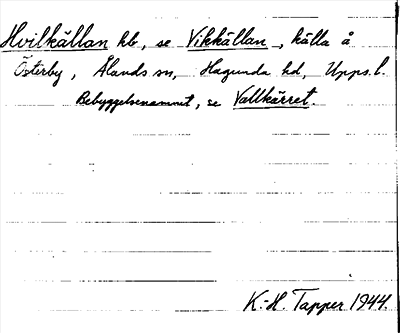 Hvilkällan hb, se Vikkällan, källa å
Österby, Ålands sn, Hagunda hd, Upps. l.
Bebyggelsenamnet, se Vallkärret.
K.-H. Tapper 1944.